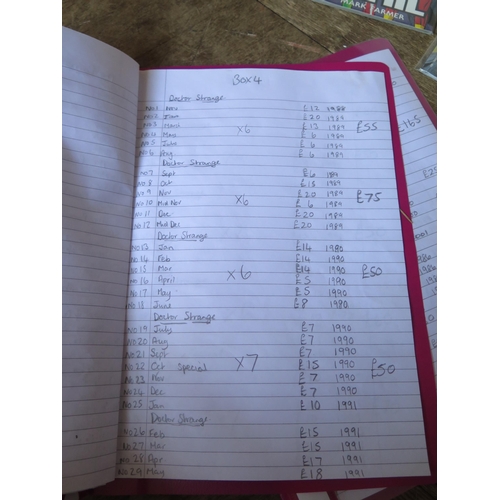 MARK FARMER
BOX 4
Doctor Strange
No 1 Nov £12 1988
No 2 Jan £20 1989
No 3 March £13 1989
No 4 May x6 £6 1989 £55
No 5 July £6 1989
No 6 Aug £6 1989
Doctor Strange
No 7 Sept £6 1989
No 8 Oct £15 1989
No 9 Nov £20 1989
No 10 Mid Nov x6 £6 1989 £75
No 11 Dec £20 1989
No 12 Mid Dec £20 1989
Doctor Strange
No 13 Jan £14 1980
No 14 Feb £14 1990
No 15 Mar £14 1990 £50
No 16 April x6 £5 1990
No 17 May £5 1990
No 18 June £8 1980
Doctor Strange
No 19 July £7 1990
No 20 Aug £7 1990
No 21 Sept £7 1990
No 22 Oct Special x7 £15 1990
No 23 Nov £7 1990 £50
No 24 Dec £7 1990
No 25 Jan £10 1991
Doctor Strange
No 26 Feb £15 1991
No 27 Mar £15 1991
No 28 Apr £17 1991
No 29 May £18 1991
£165
1986